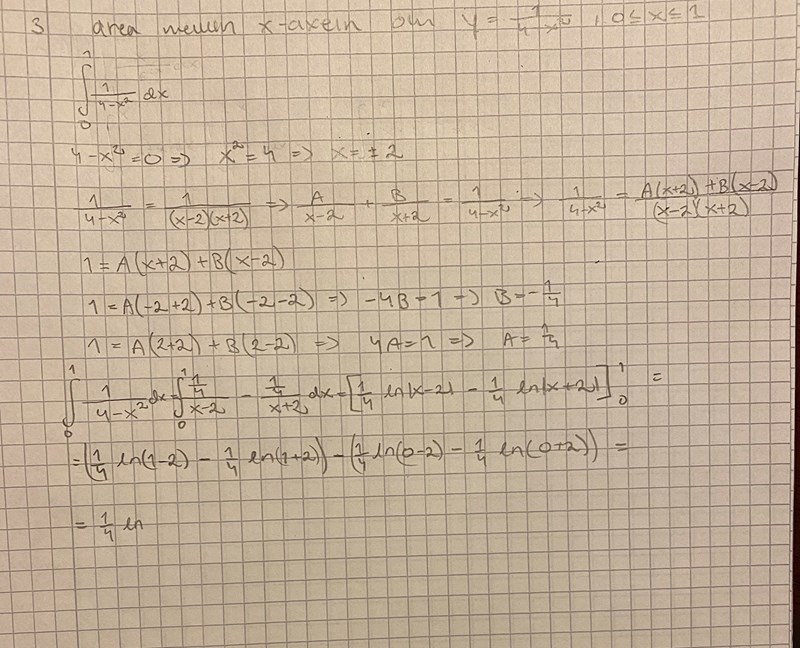 3 area mellan x-axeln och y = 1/(4-x²), 0≤x≤1
∫₀¹ 1/(4-x²) dx
4-x²=0 => x²=4 => x=±2
1/(4-x²) = 1/((x-2)(x+2)) => A/(x-2) + B/(x+2) = 1/(4-x²) => 1/(4-x²) = (A(x+2)+B(x-2))/((x-2)(x+2))
1=A(x+2)+B(x-2)
1=A(-2+2)+B(-2-2) => -4B=1 => B=-1/4
1=A(2+2)+B(2-2) => 4A=1 => A=1/4
∫₀¹ 1/(4-x²) dx = ∫₀¹ (1/4)/(x-2) - (1/4)/(x+2) dx = [1/4 ln|x-2| - 1/4 ln|x+2|]₀¹ =
=(1/4 ln(1-2) - 1/4 ln(1+2)) - (1/4 ln(0-2) - 1/4 ln(0+2)) =
= 1/4 ln